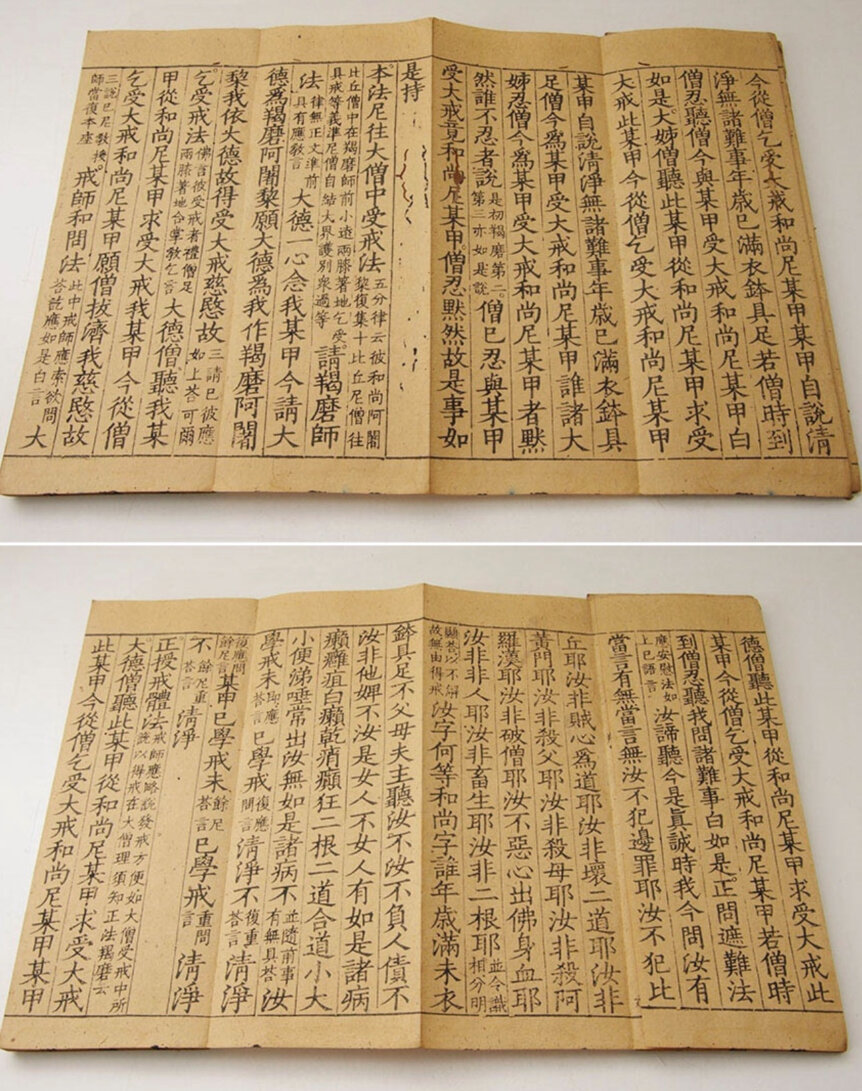 今從僧乞受大戒和尚尼某甲某甲自說清
淨無諸難事年歲已滿衣鉢具足若僧時到
僧忍聽僧今與某甲受大戒和尚尼某甲白
如是大姊僧聽此某甲從和尚尼某甲求受
大戒此某甲今從僧乞受大戒和尚尼某甲
某甲自說清淨無諸難事年歲已滿衣鉢具
足僧今爲某甲受大戒和尚尼某甲誰諸大
姊忍僧今爲某甲受大戒和尚尼某甲者默
然誰不忍者說是初羯磨第二第三亦如是說僧已忍與某甲
受大戒竟和尚尼某甲僧忍默然故是事如
是持
本法尼往大僧中受戒法五分律云彼和尚阿闍黎復集十比丘尼僧往
比丘僧中在羯磨師前小遠兩膝著地乞受具戒等義準尼僧自結大界護別衆過等請羯磨師
法律無正文準前具有應教言大德一心念我某甲今請大
德爲羯磨阿闍黎願大德爲我作羯磨阿闍
黎我依大德故得受大戒慈愍故三請已彼應如上荅可爾
乞受戒法佛言彼受戒者禮僧足兩膝著地合掌教乞言大德僧聽我某
甲從和尚尼某甲求受大戒我某甲今從僧
乞受大戒和尚尼某甲願僧拔濟我慈愍故
三說已尼教授師當復本座戒師和問法此中戒師應索欲問荅訖應如是白言大
德僧聽此某甲從和尚尼某甲求受大戒此
某甲今從僧乞受大戒和尚尼某甲若僧時
到僧忍聽我問諸難事白如是正問遮難法
應安慰法如上已語言汝諦聽今是真誠時我今問汝有
當言有無當言無汝不犯邊罪耶汝不犯比
丘耶汝非賊心爲道耶汝非壞二道耶汝非
黃門耶汝非殺父耶汝非殺母耶汝非殺阿
羅漢耶汝非破僧耶汝不惡心出佛身血耶
汝非非人耶汝非畜生耶汝非二根耶並令識相分明
顯荅以不解故無由得戒汝字何等和尚字誰年歲滿未衣
鉢具足不父母夫主聽汝不汝不負人債不
汝非他婢不汝是女人不女人有如是諸病
癩癰疽白癩乾痟癲狂二根二道合道小大
小便涕唾常出汝無如是諸病不並隨前事有無具荅汝
學戒未即應荅言已學戒復應問言清淨不復重荅言清淨
復應問餘尼言某甲已學戒未餘尼荅言已學戒重問清淨
不餘尼重荅言清淨
正授戒體法戒師應略說發戒方便如大僧受戒中所說以得戒在大僧理須知正法羯磨云
大德僧聽此某甲從和尚尼某甲求受大戒
此某甲今從僧乞受大戒和尚尼某甲某甲